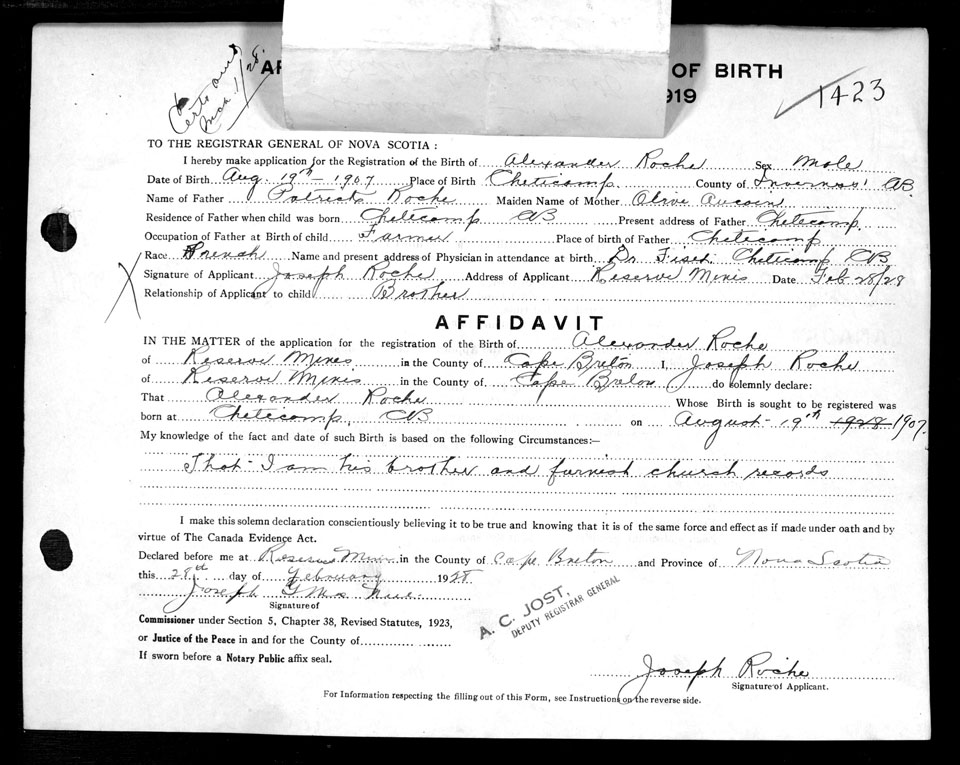 Certs
Mar 1/28
OF BIRTH
919
1423
TO THE REGISTRAR GENERAL OF NOVA SCOTIA :
I hereby make application for the Registration of the Birth of Alexander Roche Sex Male
Date of Birth Aug. 19th - 1907 Place of Birth Cheticamp County of Inverness CB
Name of Father Patrick Roche Maiden Name of Mother Olive Aucoin
Residence of Father when child was born Cheticamp CB Present address of Father Cheticamp
Occupation of Father at Birth of child Farmer Place of birth of Father Cheticamp
Race French Name and present address of Physician in attendance at birth Dr. Fiset Cheticamp CB
Signature of Applicant Joseph Roche Address of Applicant Reserve Mines Date Feb 28/28
Relationship of Applicant to child Brother
AFFIDAVIT
IN THE MATTER of the application for the registration of the Birth of Alexander Roche
of Reserve Mines in the County of Cape Breton I, Joseph Roche
of Reserve Mines in the County of Cape Breton do solemnly declare:
That Alexander Roche Whose Birth is sought to be registered was
born at Cheticamp, CB on August 19th 1928 1907.
My knowledge of the fact and date of such Birth is based on the following Circumstances:—
That I am his brother and furnish church records
I make this solemn declaration conscientiously believing it to be true and knowing that it is of the same force and effect as if made under oath and by
virtue of The Canada Evidence Act.
Declared before me at Reserve Mines in the County of Cape Breton and Province of Nova Scotia
this 28th day of February 1928
Joseph
Signature of
Commissioner under Section 5, Chapter 38, Revised Statutes, 1923,
or Justice of the Peace in and for the County of
If sworn before a Notary Public affix seal.
A. C. JOST,
DEPUTY REGISTRAR GENERAL
Joseph Roche
Signature of Applicant.
For Information respecting the filling out of this Form, see Instructions on the reverse side.